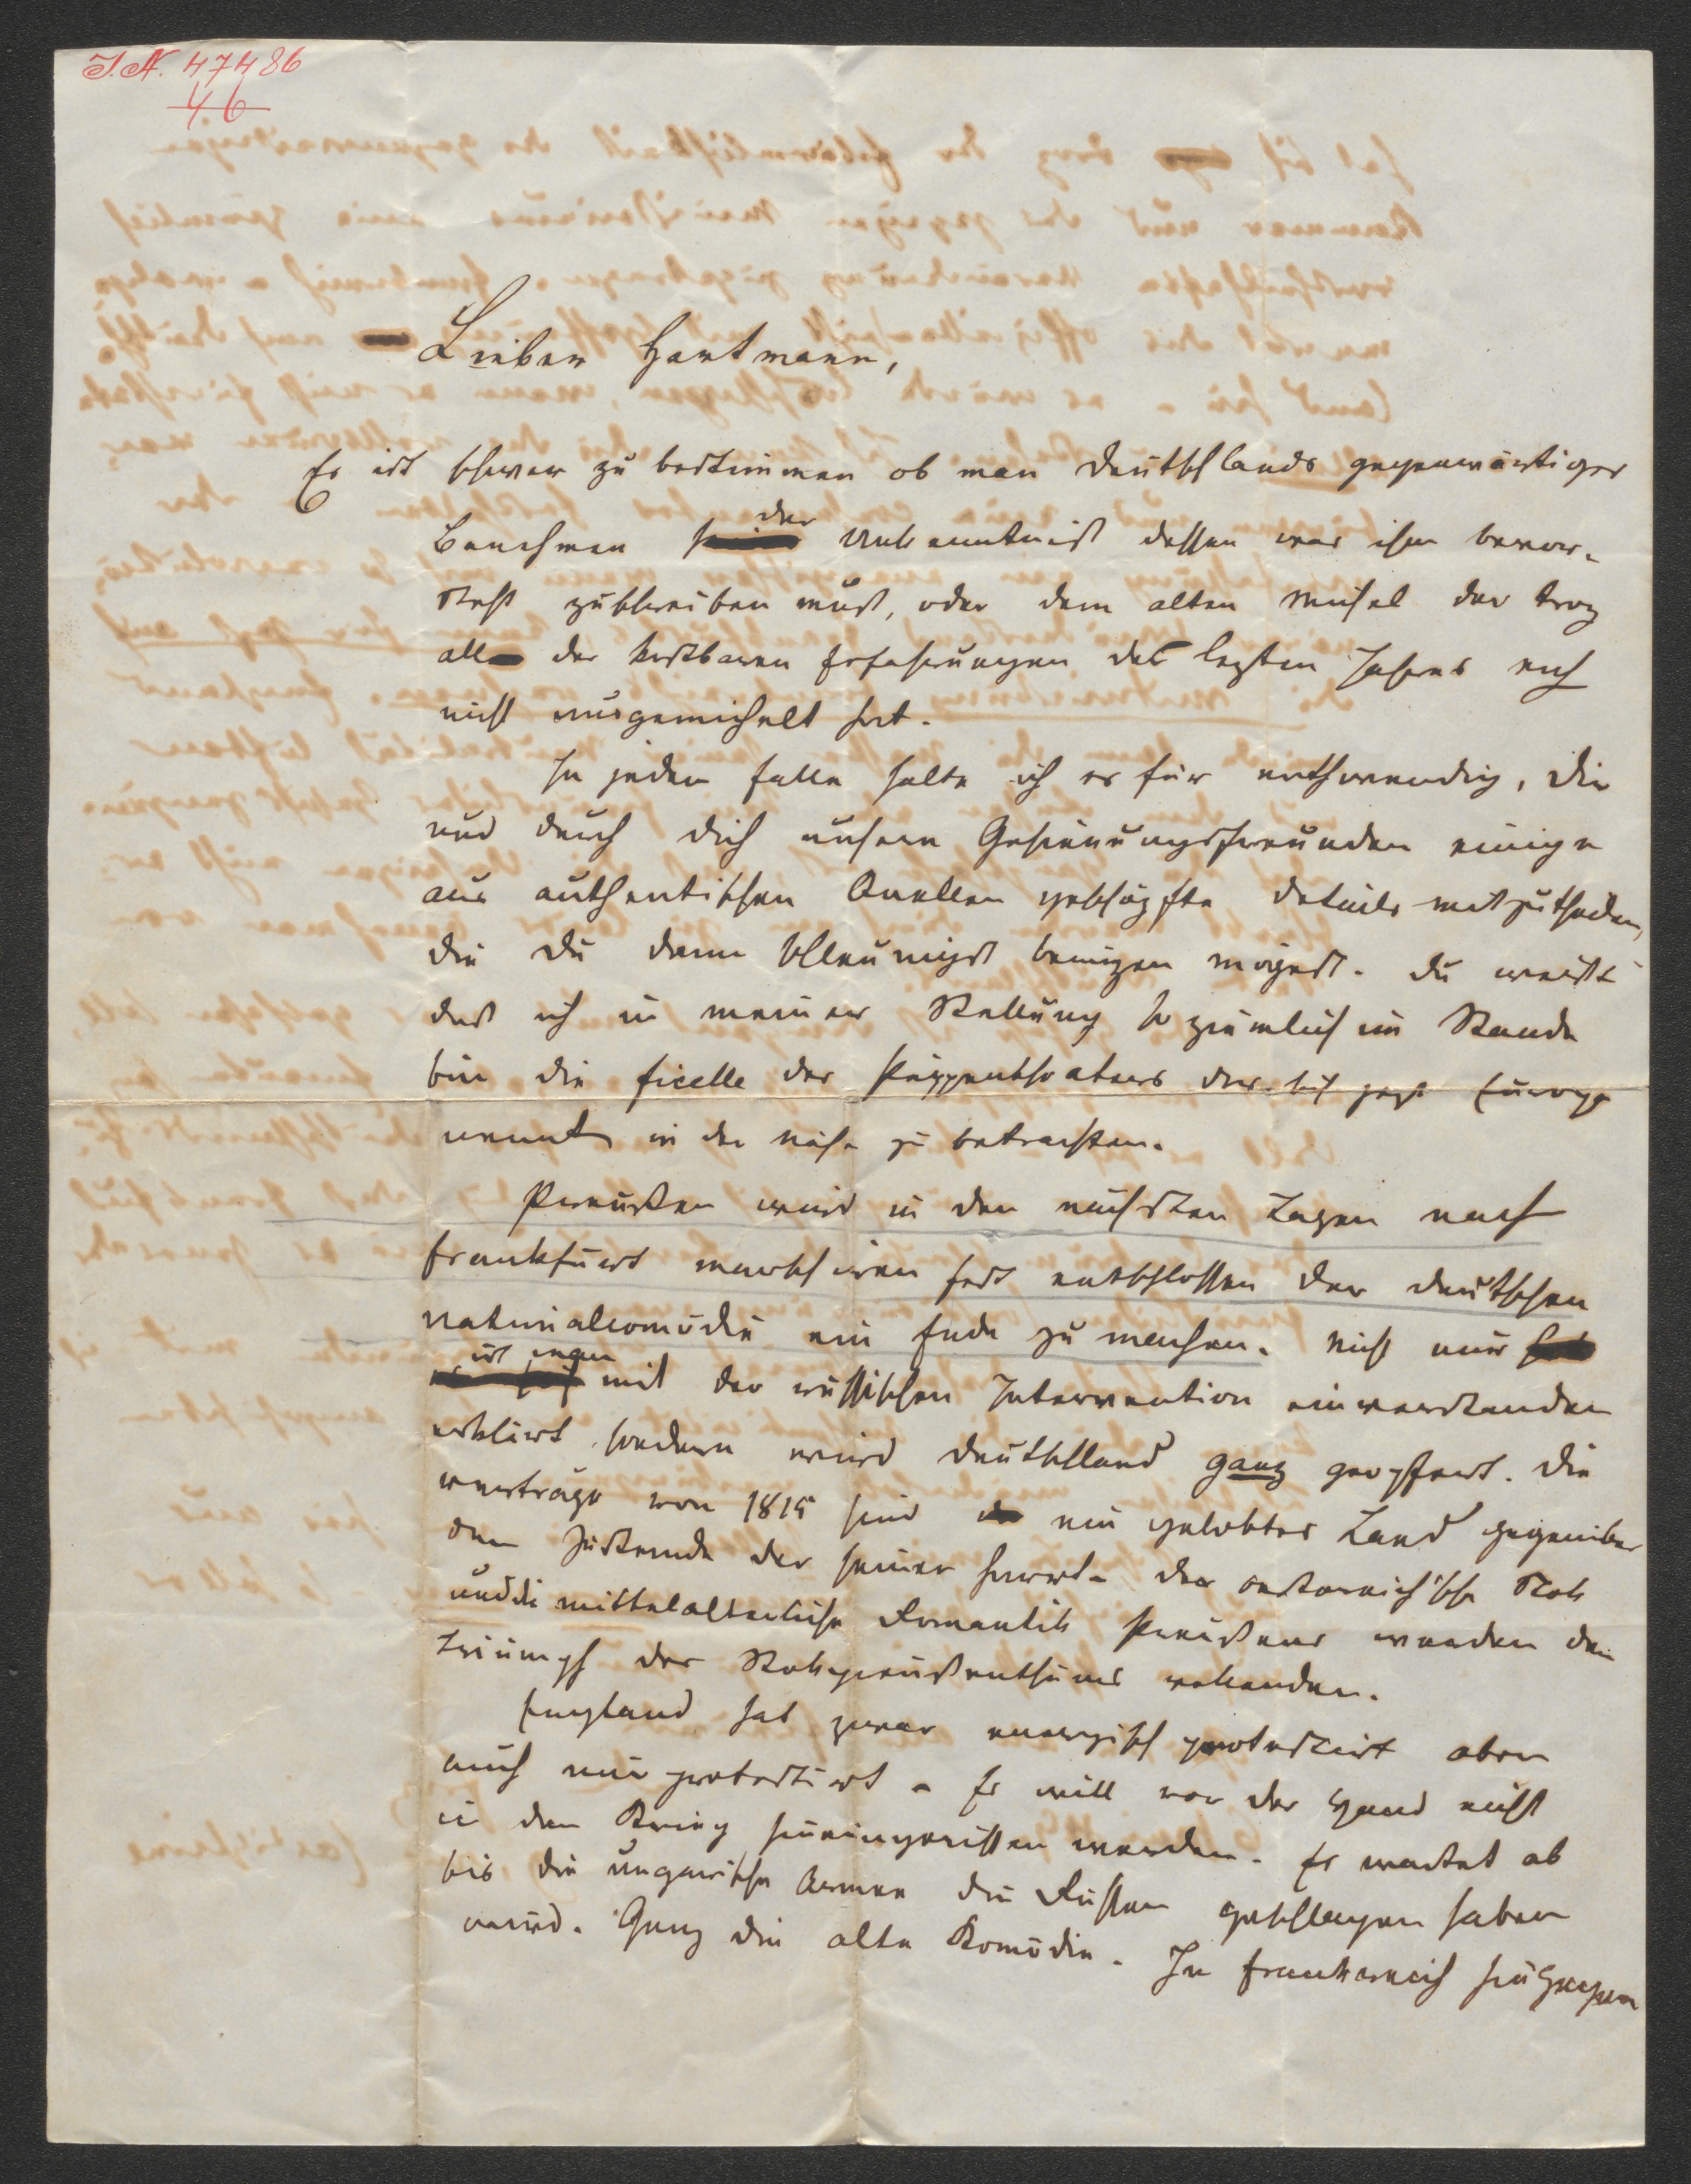 I.N. 47486
46
Lieber Hartmann,
Es ist schwer zu bestimmen ob man Deutschlands gegenwärtiges
Benehmen der Unkenntniß dessen was ihm bevor-
steht zuschreiben muß, oder dem alten Michel der troz
all der kostbaren Erfahrungen des lezten Jahres noch
nicht ausgemichelt hat.
In jedem Falle halte ich es für nothwendig, Dir
und durch Dich unsern Gesinnungsfreunden einige
aus authentischen Quellen geschöpfte Details mitzutheilen,
die Du dann schleunigst benüzen mögest. Du weißt
daß ich in meiner Stellung so ziemlich im Stande
bin die ficelle des Puppentheaters das sich jezt Europa
nennt in der Nähe zu betrachten.
Preußen wird in den nächsten Tagen nach
Frankfurt marschiren fest entschlossen der deutschen
Nationalcomödie ein Ende zu machen. Nicht nur
ist man mit der russischen Intervention einverstanden
erklärt sondern wird Deutschland ganz geopfert. Die
Verträge von 1815 sind ein gelobtes Land gegenüber
dem Zustande der seiner harrt. Der oesterreich'sche Stock
und die mittelalterliche Romantik Preußens werden den
Triumph des Stockpreußenthums vollenden.
England hat zwar energisch protestirt aber
auch nur protestirt - Es will vor der Hand nicht
in den Krieg hineingerissen werden. Es wartet ab
bis die ungarische Armee die Russen geschlagen haben
wird. Ganz die alte Komödie. In Frankreich hingegen